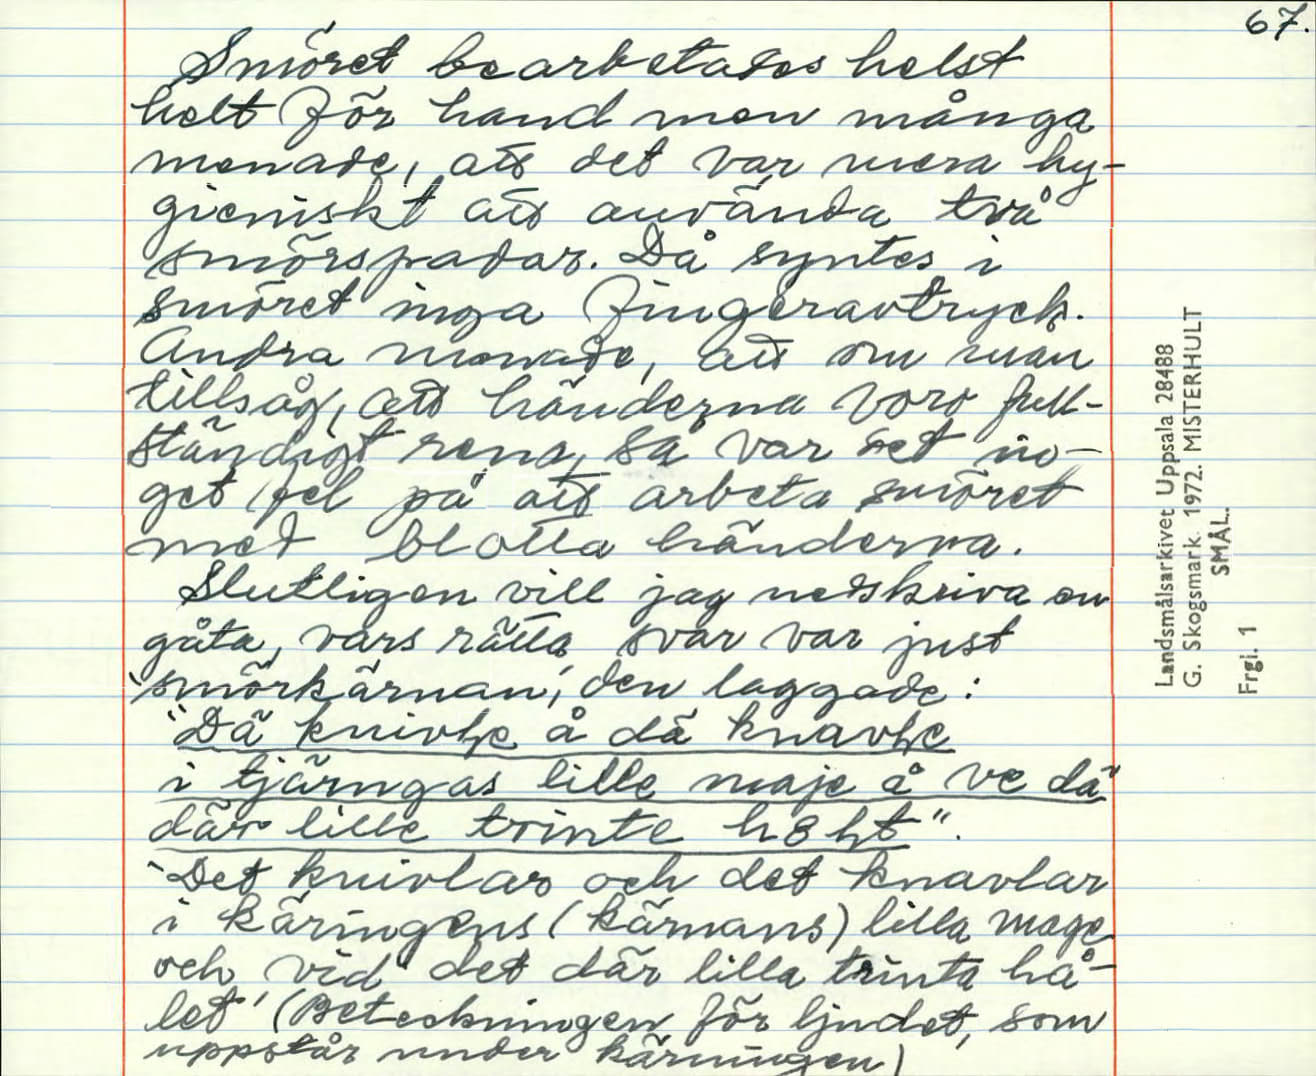 67.
Smöret bearbetades helst
helt för hand men många
menade, att det var mera hy-
gieniskt att använda två
smörspadar. Då syntes i
smöret inga fingeravtryck.
Andra menade, att om man
tillsåg, att händerna voro full-
ständigt rena, så var det in-
get fel på att arbeta smöret
med blotta händerna.
Slutligen vill jag nedskriva en
gåta, vars rätta svar var just
"smörkärnan", den laggade:
"Dä å dä
i tjärngas lille maje å ve dä
där lille trinte
"Det knivlar och det knavlar
i käringens (kärnans) lilla mage
och vid det där lilla trinta hå-
let" (Beteckningen för ljudet, som
uppstår under kärningen)
Landsmålsarkivet Uppsala 28488
G. Skogsmark. 1972. MISTERHULT
SMÅL.
Frgl. 1